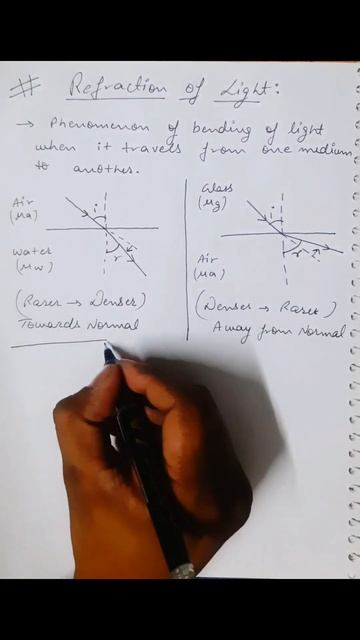 # Refraction of Light:
→ Phenomenon of bending of light
when it travels from one medium
to another.
Air
(μa)
i
Water
(μw)
r
(Rarer → Denser)
Towards Normal
Glass
(μg)
i
Air
(μa)
r
(Denser → Rarer)
Away from Normal